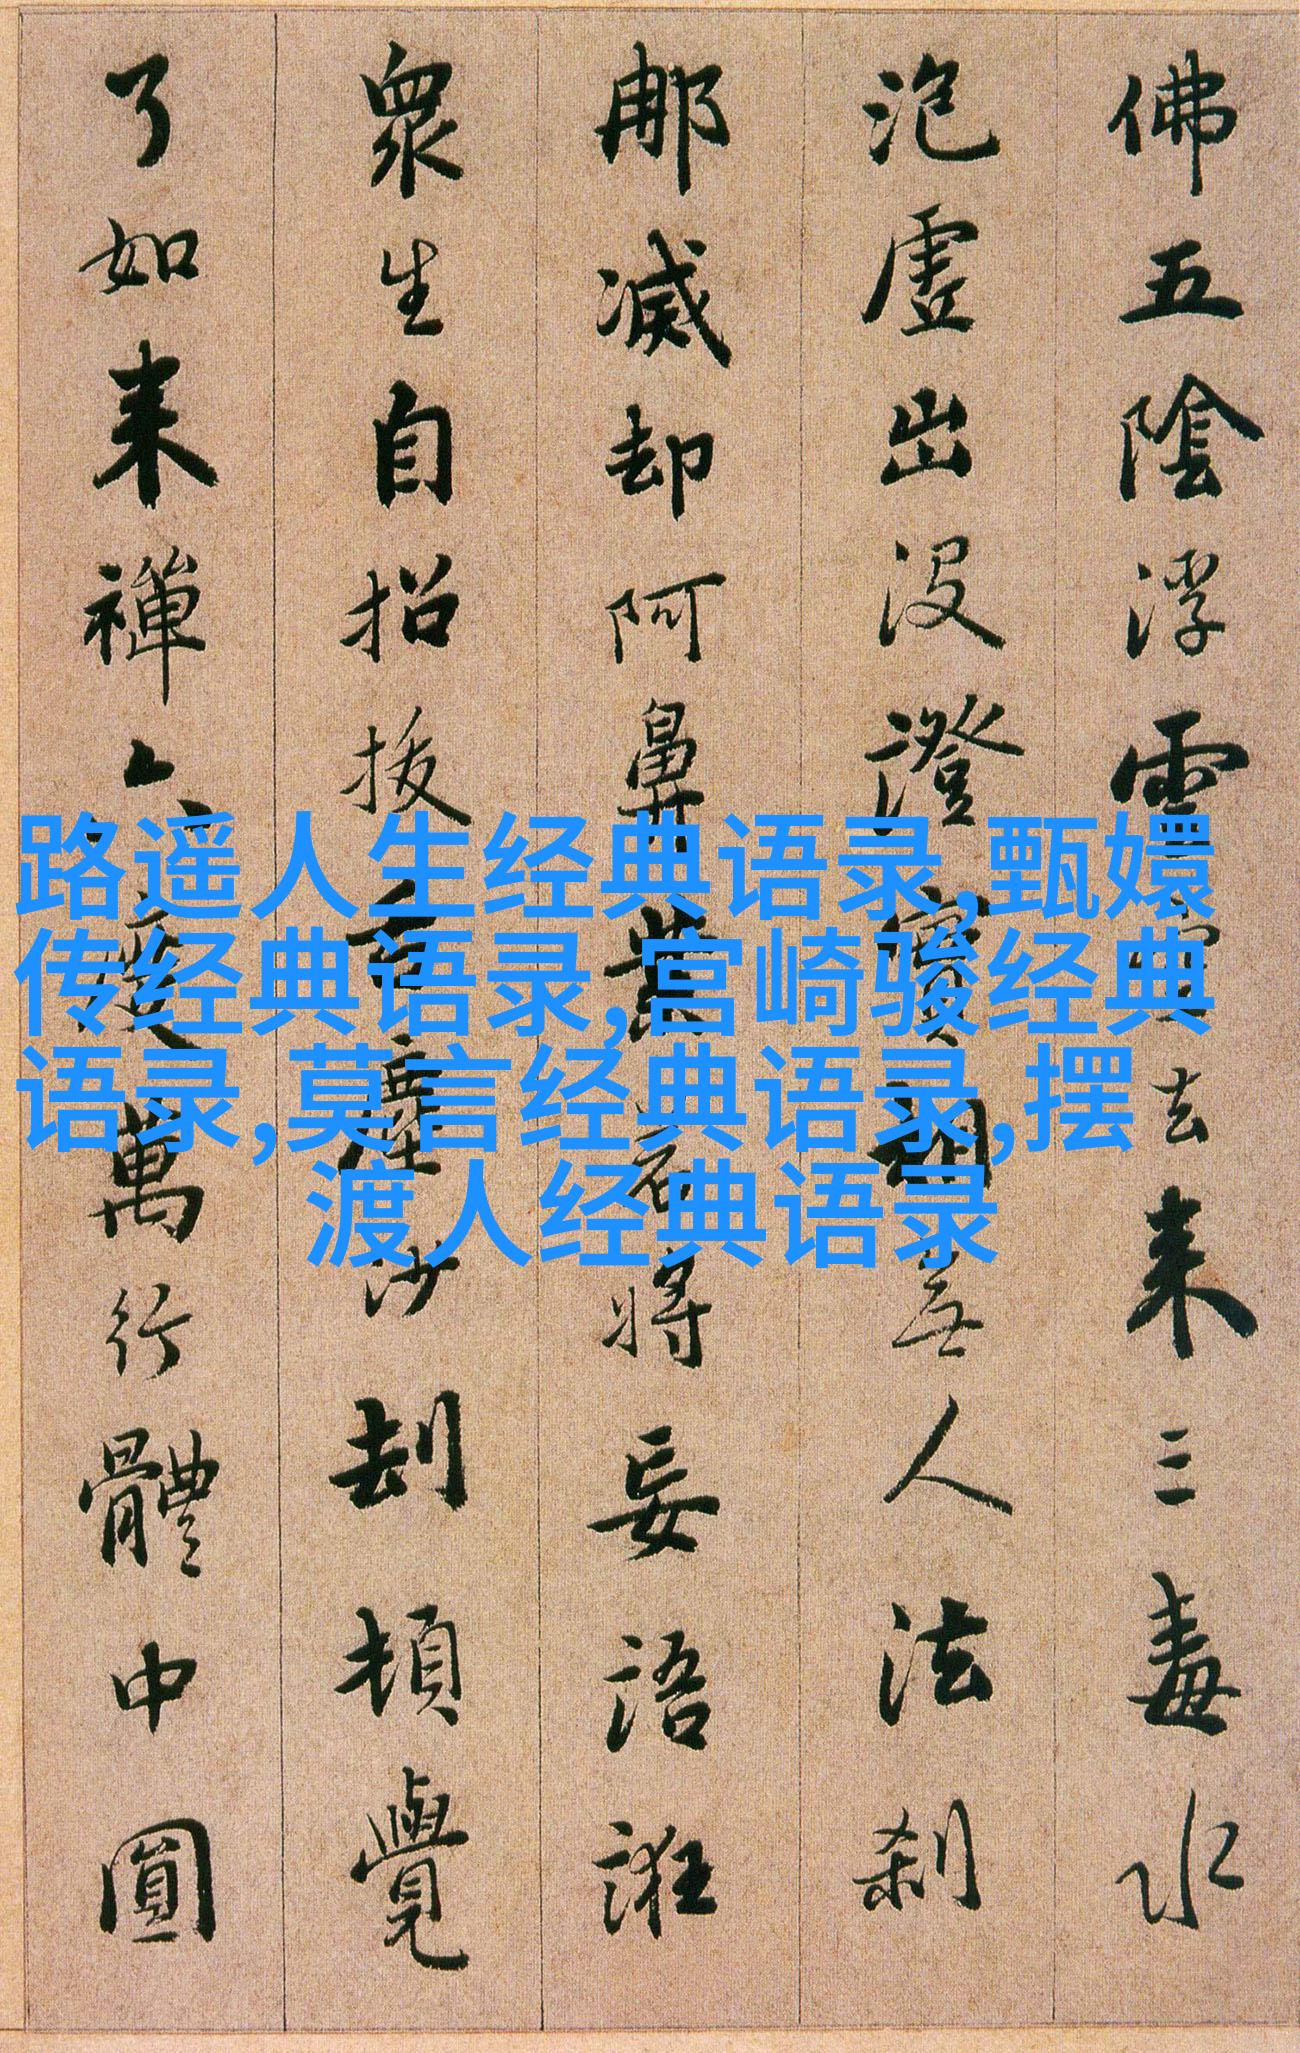 佛五陰浮雲空去来三毒水
泡虛出没證實相無人法刹
那滅却阿鼻業若將妄語誑
衆生自招拔舌塵沙劫頓覺
了如来禪六度萬行體中圓
路遥人生经典语录,甄嬛
传经典语录,宫崎骏经典
语录,莫言经典语录,摆
渡人经典语录